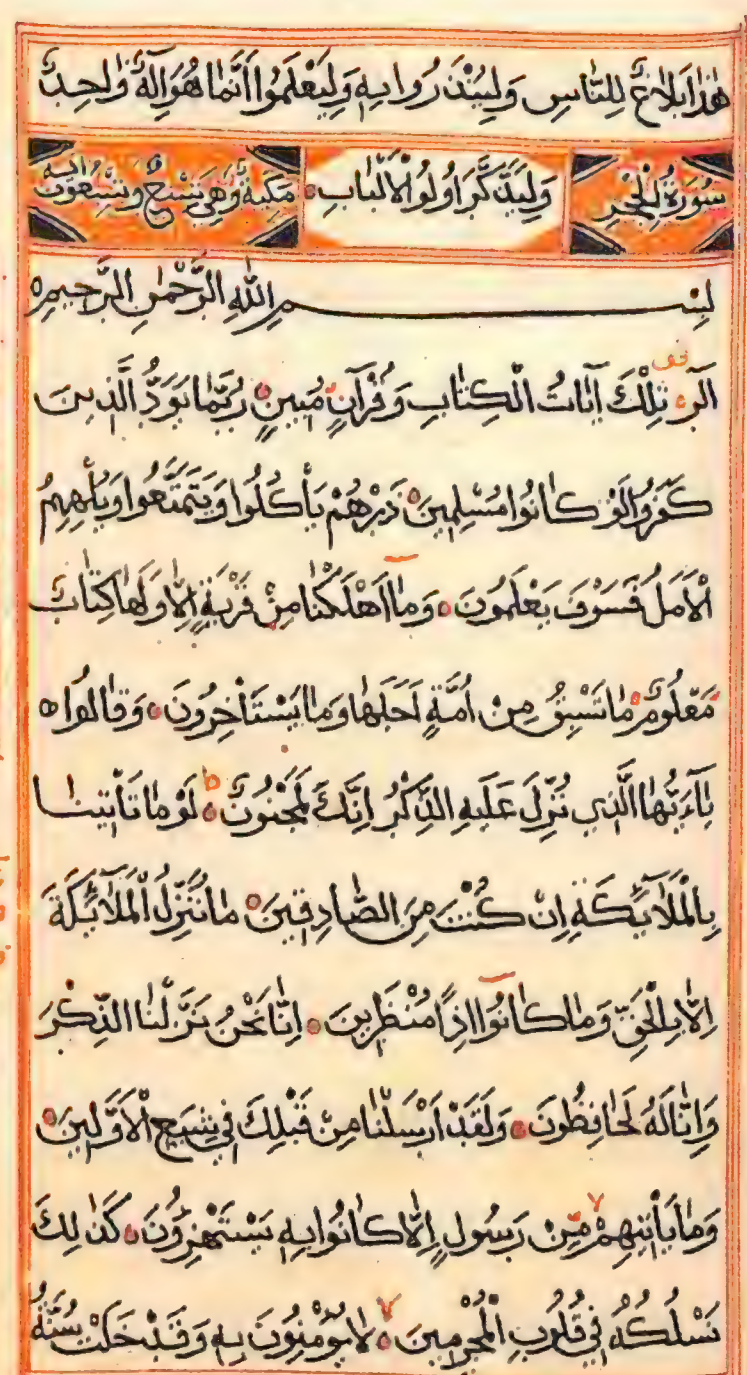 هٰذَا بَلَاغٌ لِلنَّاسِ وَلِيُنْذَرُوا بِهِ وَلِيَعْلَمُوا أَنَّمَا هُوَ اِلٰهٌ وَاحِدٌ
سُورَةُ الْحِجْرِ وَلِيَذَّكَّرَ اُولُوا الْاَلْبَابِ مَكِّيَّةٌ وَهِيَ تِسْعٌ وَتِسْعُونَ اٰيَة
بِسْمِ اللّٰهِ الرَّحْمٰنِ الرَّحِيمِ
الٓرٰ تِلْكَ اٰيَاتُ الْكِتَابِ وَقُرْاٰنٍ مُبِينٍ رُبَمَا يَوَدُّ الَّذِينَ
كَفَرُوا لَوْ كَانُوا مُسْلِمِينَ ذَرْهُمْ يَأْكُلُوا وَيَتَمَتَّعُوا وَيُلْهِهِمُ
الْاَمَلُ فَسَوْفَ يَعْلَمُونَ وَمَا اَهْلَكْنَا مِنْ قَرْيَةٍ اِلَّا وَلَهَا كِتَابٌ
مَعْلُومٌ مَا تَسْبِقُ مِنْ اُمَّةٍ اَجَلَهَا وَمَا يَسْتَأْخِرُونَ وَقَالُوا
يَا اَيُّهَا الَّذِي نُزِّلَ عَلَيْهِ الذِّكْرُ اِنَّكَ لَمَجْنُونٌ لَوْ مَا تَأْتِينَا
بِالْمَلَائِكَةِ اِنْ كُنْتَ مِنَ الصَّادِقِينَ مَا نُنَزِّلُ الْمَلَائِكَةَ
اِلَّا بِالْحَقِّ وَمَا كَانُوا اِذًا مُنْظَرِينَ اِنَّا نَحْنُ نَزَّلْنَا الذِّكْرَ
وَاِنَّا لَهُ لَحَافِظُونَ وَلَقَدْ اَرْسَلْنَا مِنْ قَبْلِكَ فِي شِيَعِ الْاَوَّلِينَ
وَمَا يَأْتِيهِمْ مِنْ رَسُولٍ اِلَّا كَانُوا بِهِ يَسْتَهْزِؤُنَ كَذٰلِكَ
نَسْلُكُهُ فِي قُلُوبِ الْمُجْرِمِينَ لَا يُؤْمِنُونَ بِهِ وَقَدْ خَلَتْ سُنَّةُ